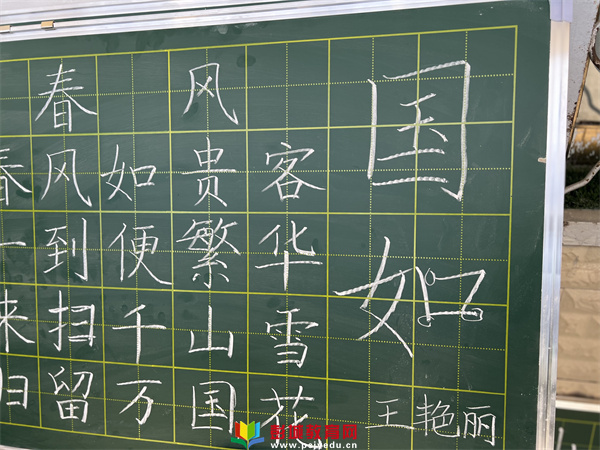 春风
春风如贵客
一到便繁华
来扫千山雪
归留万国花
国
如
王艳丽
彭城教育网
www.pcjyedu.cn